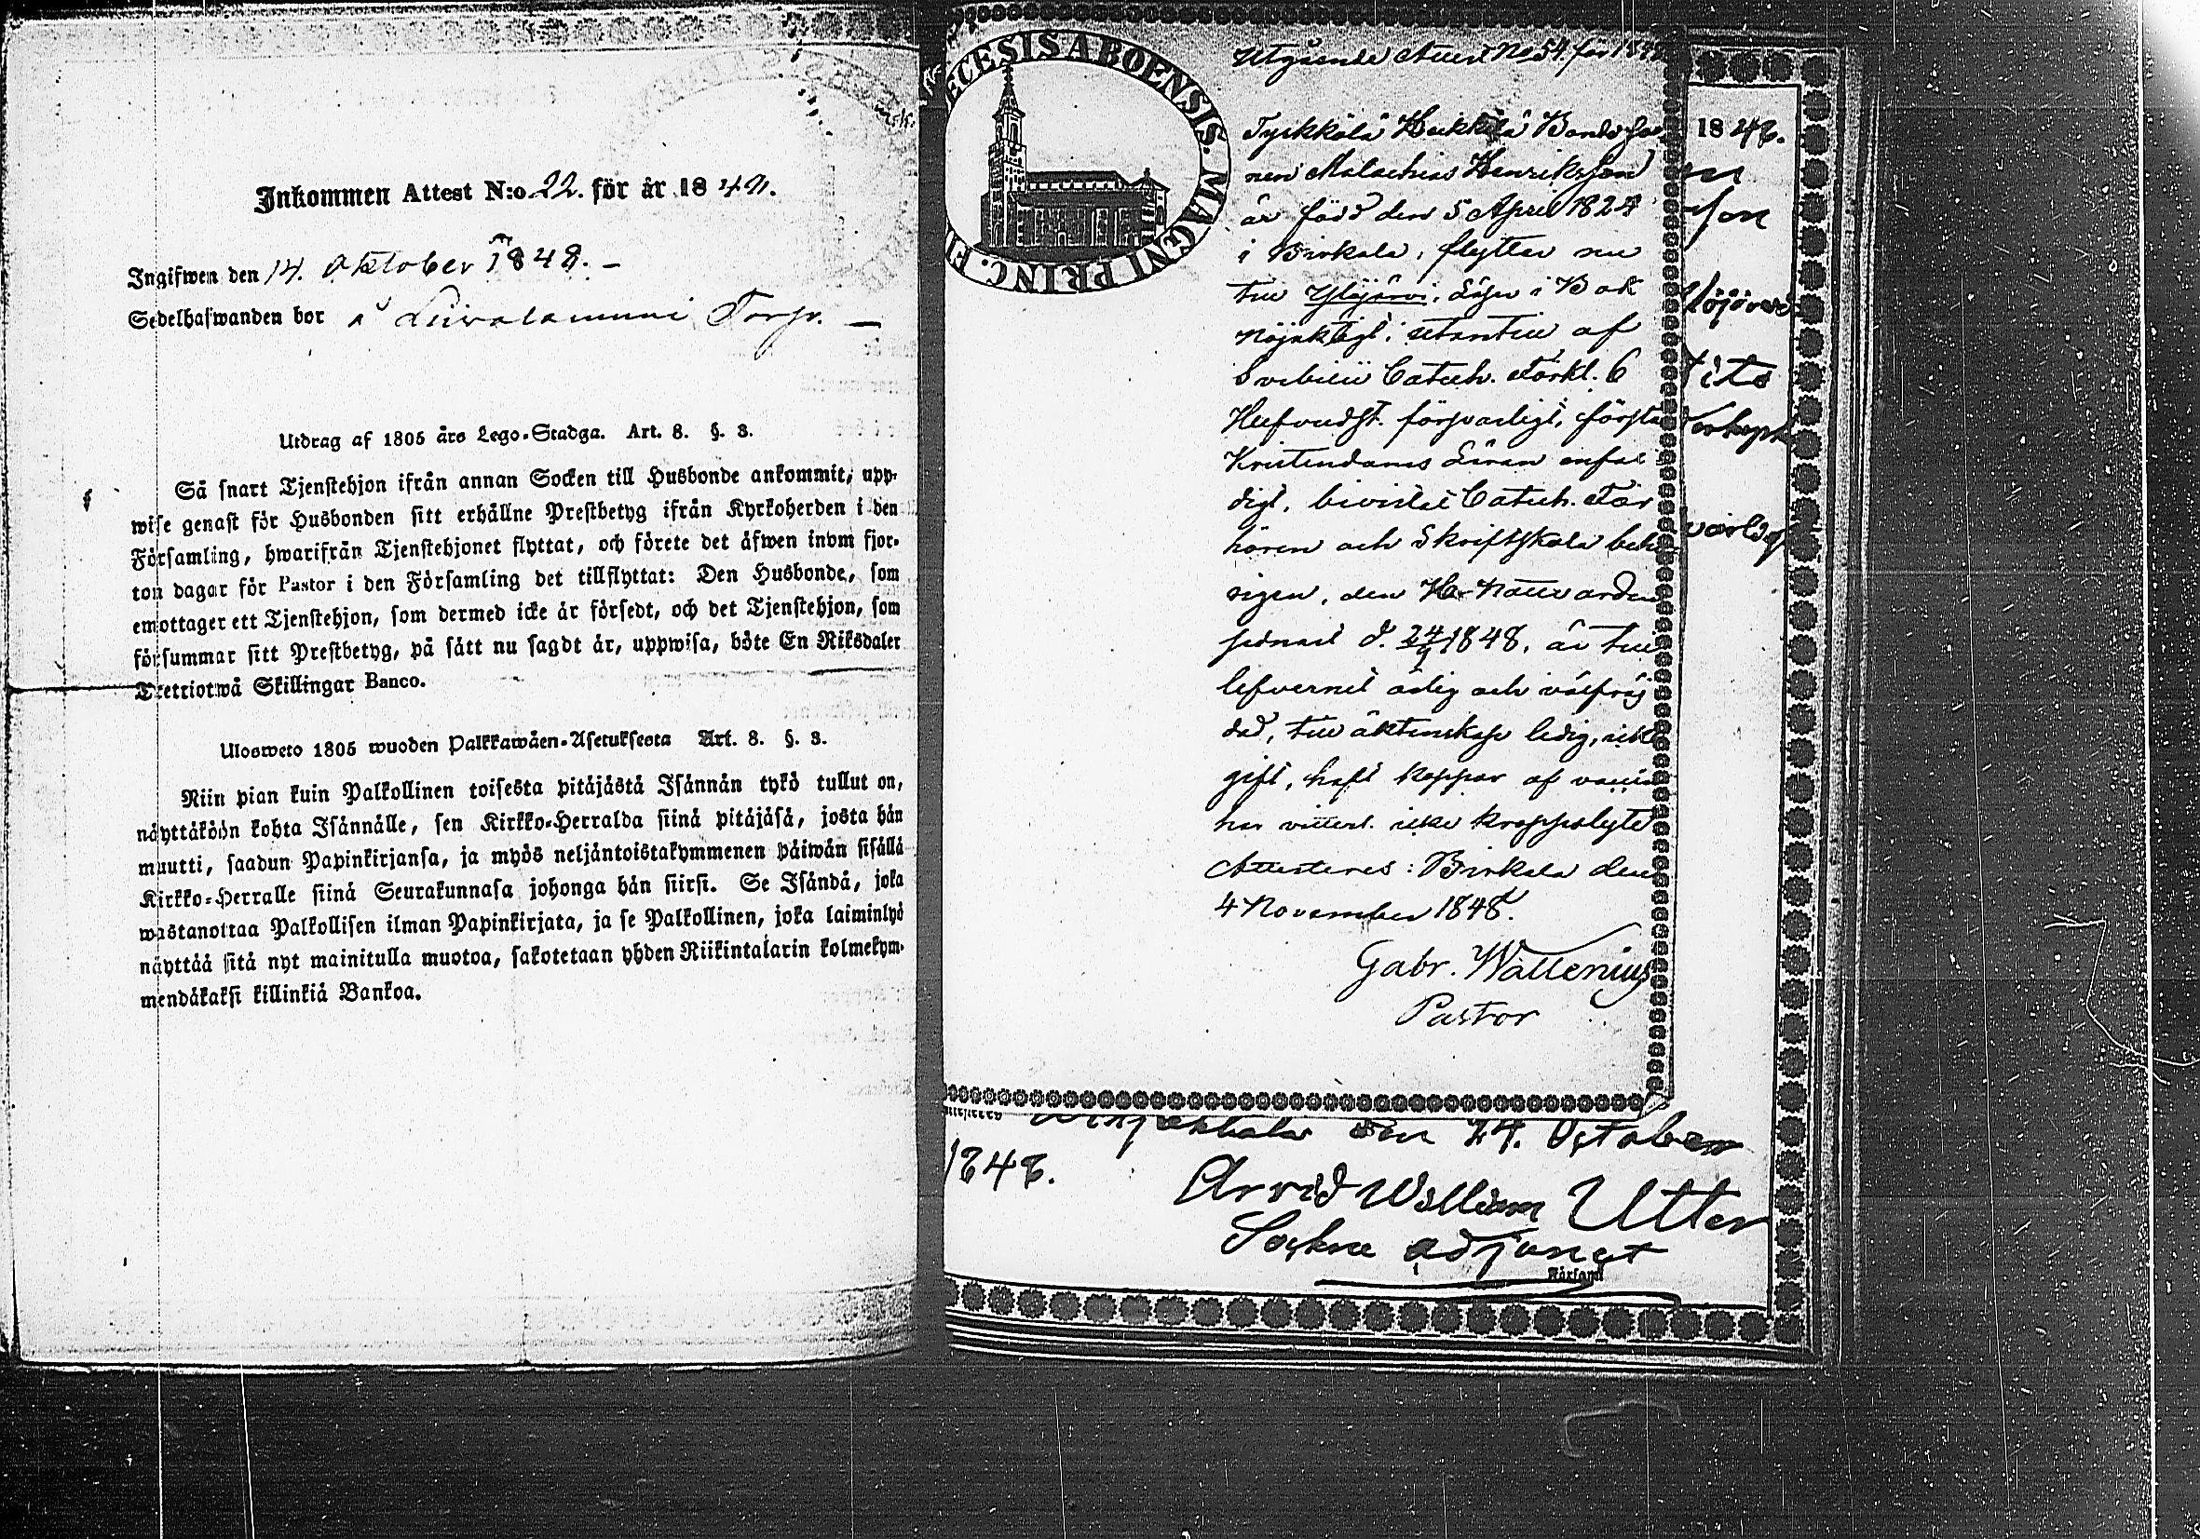 Inkommen Attest N:o 22. för år 1848.
Ingifwen den 14. Oktober 1848. –
Sedelhafwanden bor å Liivalammi Torp. –
Utdrag af 1805 års Lego-Stadga. Art. 8. §. 3.
Så snart Tjenstehjon ifrån annan Socken till Husbonde ankommit, upp-
wise genast för Husbonden sitt erhållne Prestbetyg ifrån Kyrkoherden i den
Församling, hwarifrån Tjenstehjonet flyttat, och förete det äfwen inom fjor-
ton dagar för Pastor i den Församling det tillflyttat: Den Husbonde, som
emottager ett Tjenstehjon, som dermed icke är försedt, och det Tjenstehjon, som
försummar sitt Prestbetyg, på sätt nu sagdt är, uppwisa, böte En Riksdaler
Trettiotwå Skillingar Banco.
Ulosweto 1805 wuoden Palkkawäen-Asetuksesta Art. 8. §. 3.
Niin pian kuin Palkollinen toisesta pitäjästä Isännän tykö tullut on,
näyttäköön kohta Isännälle, sen Kirkko-Herralda siinä pitäjäsä, josta hän
muutti, saadun Papinkirjansa, ja myös neljäntoistakymmenen päiwän sisällä
Kirkko-Herralle siinä Seurakunnasa johonga hän siirsi. Se Isändä, joka
wastanottaa Palkollisen ilman Papinkirjata, ja se Palkollinen, joka laiminlyö
näyttää sitä nyt mainitulla muotoa, sakotetaan yhden Riikintalarin kolmekym-
mendäkaksi killinkiä Bankoa.
ECESIS ABOENSIS. MAGNI PRINC. FI
Utgående Attest No 54 för 1848
Tyrkkölä Heikkilä Bondeso
nen Malachias Henriksson
är född den 5 April 1824
i Birkala, flyttar nu
till Ylöjärvi, Läser i Bok
nöjaktigt, utantill af
Svebilii Catech. Förkl. 6
Hufvudst. försvarligt, förstå
Kristendoms Läran enfal
digt, bevistat Catech. För
hören och Skriftskola behö
rigen, den H. Nattvarden
sednast d. 24/9 1848, är till
lefvernet ärlig och välfräj
dad, till äktenskap ledig, icke
gift, haft koppor af vaccin
har vitterl. icke kroppslyte
Attesteres: Birkala den
4 November 1848.
Gabr. Wallenius
Pastor
1848.
son
löjärvi
den 24. October
1848.
Arvid William Utter
Sockne adjunct